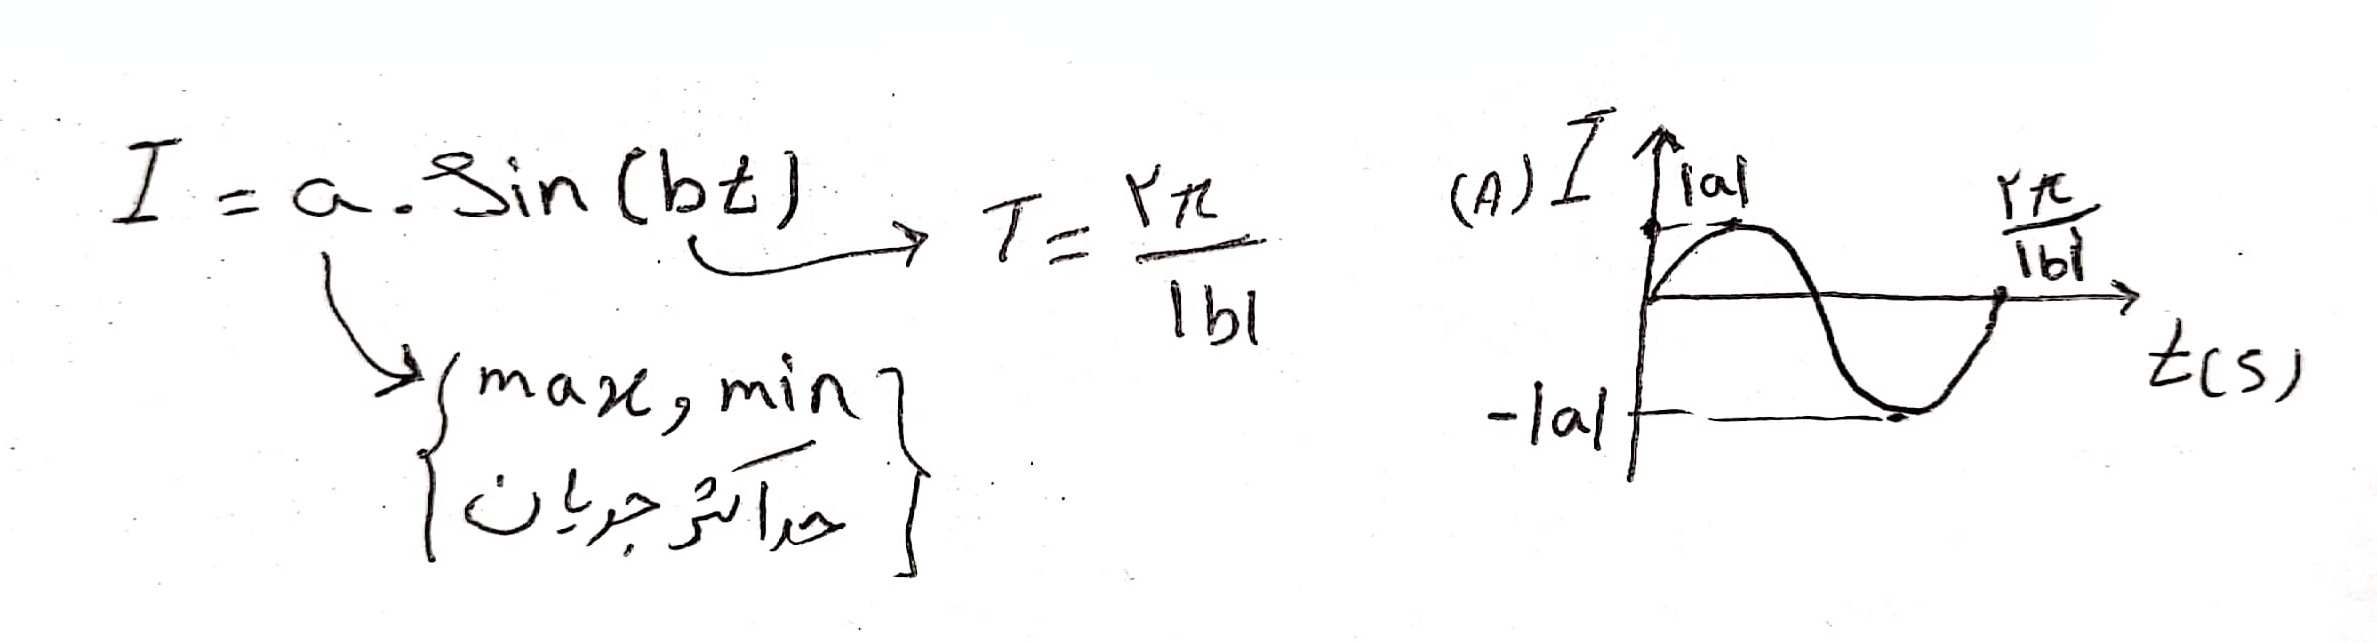 I = a. Sin (bt) → T = ۲π / |b|
{max, min}
{حداکثر جریان}
(A) I
|a|
۲π / |b|
-|a|
t(s)